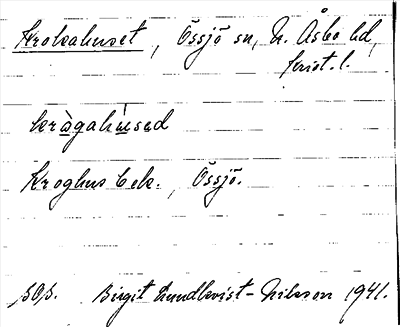 Krokahuset, Össjö sn, N. Åsbo hd,
Krist. l.
kràgahùsad
Kroghus Eck., Össjö.
Birgit Lundkvist-Nilsson 1941.